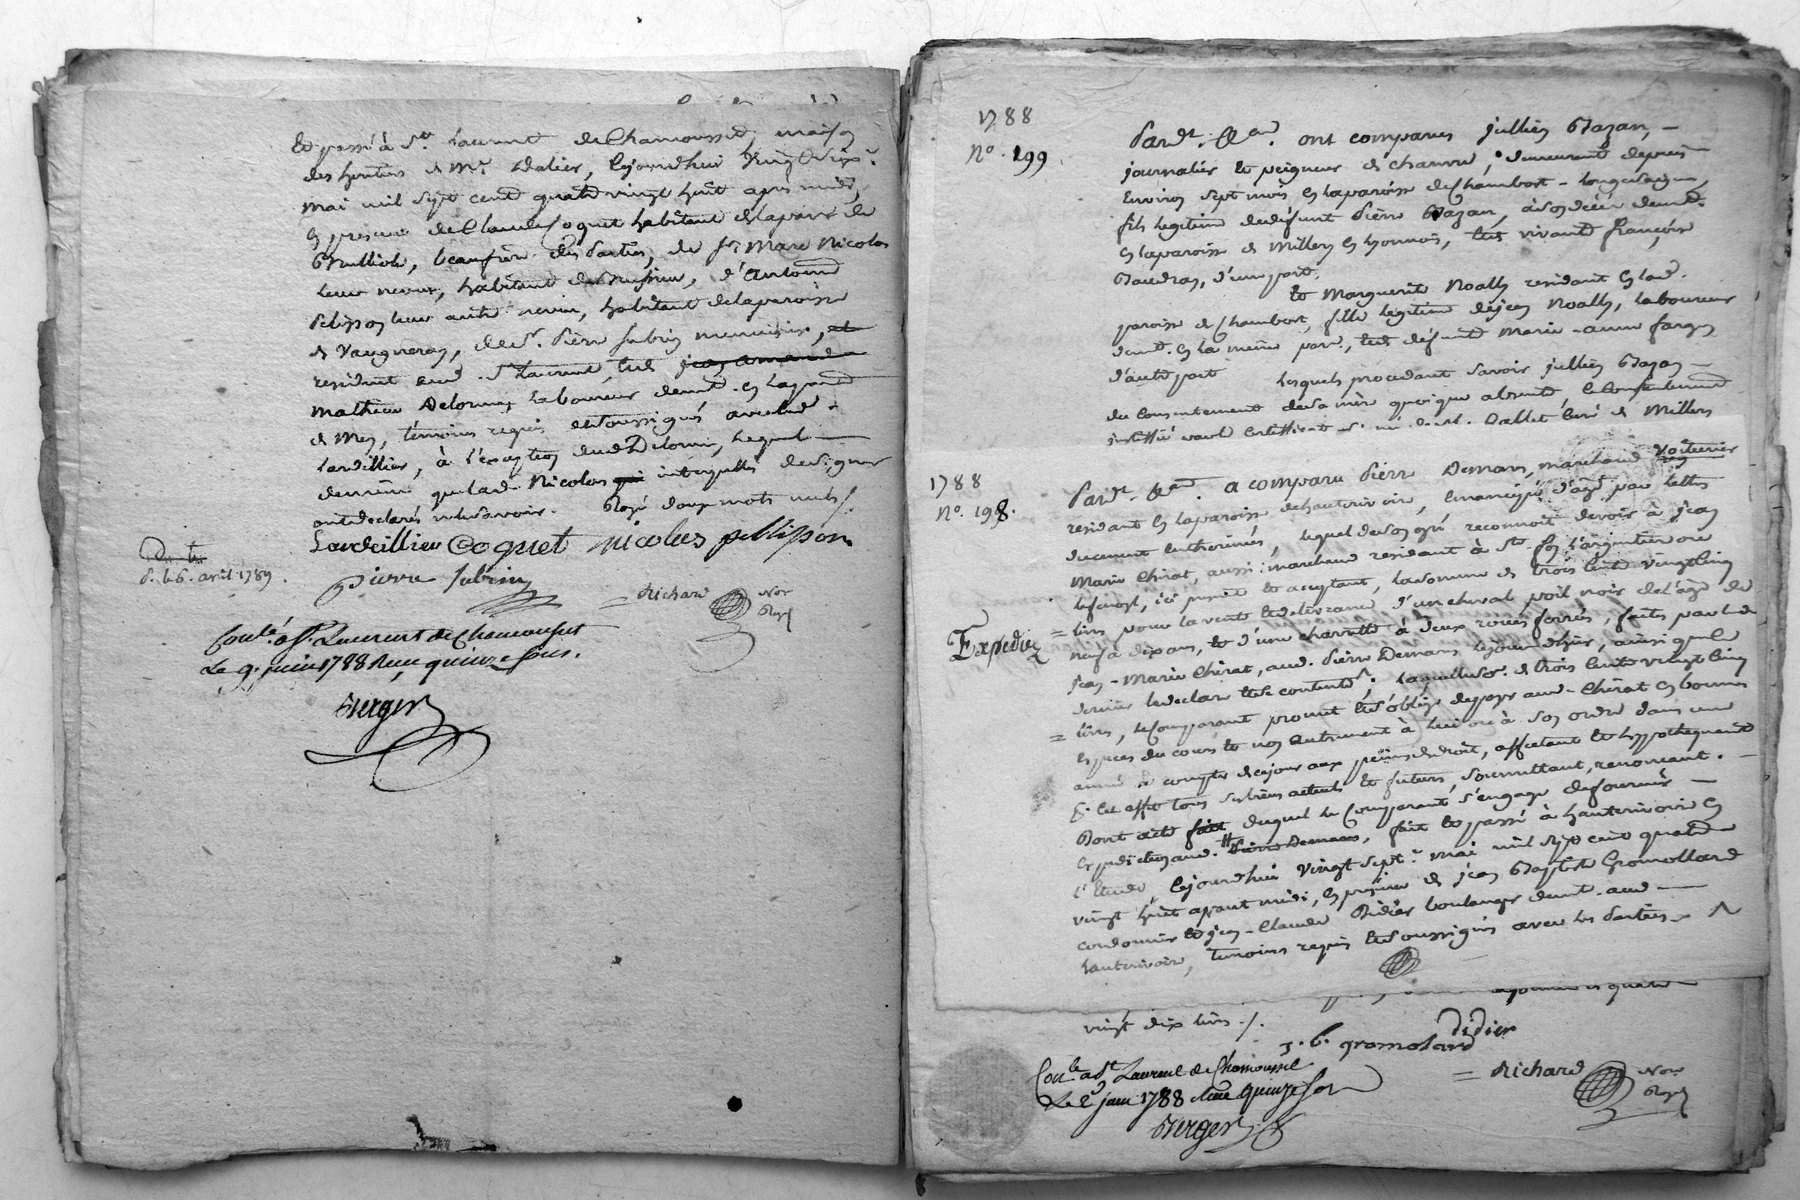 Et passé à St Laurent de Chamousset, maison
des heritiers de Mr Dalier, Cejourdhui vingt six
mai mil sept cent quatre vingt huit après midi,
En presence de Claude Coquet habitant de la parse de
Brulliole, beaufrère des Parties, de Sr Marc Nicolas
leur neveu, habitant de Brussieu, d'Antoine
Pelisson leur autre neveu, habitant de la paroisse
de Vaugneray, de Sr Pierre Subrin menuisier,
resident aud. St Laurent, et de
Mathieu Delorme, laboureur demt. en la parse
de Mey, témoins requis et soussignés avec led.
Lardillier, à l'exception dud Delorme, lequel
de même que lad. Nicolas qui interpellés de signer
ont declarés ne le savoir. Rayé douze mots nuls ./.
Lardeillier Coquet nicolas pellisson
D. le 6. avril 1789.
pierre subrin
= Richard Nore Royal
Conlé à St. Laurent de Chamousset
Le 9. juin 1788 Reçu quinze sous.
Berger
1788
No. 199
Pardt. &a. ont comparus jullien Bazan,
journalier et peigneur de chanvre, demeurant depuis
Environ sept mois en la paroisse de Chambost - Longessaigne,
fils legitime de défunt Pierre Bazan, à son décès demt.
En la paroisse de Millery en Lyonnois, et de vivante françoise
Baudras, d'une part.
Et Marguerite Noally residant en lad.
paroisse de Chambost, fille legitime de jean Noally, laboureur
demt. En la même parse, et de défunte Marie-anne farges
d'autre part Lesquels procedant savoir jullien Bazan
du Consentement de sa mère quoique absente, le Consentement
justifié par le Certificat de Dallet Curé de Millery
1788
No. 198.
Expediéz
Pardt. &a. a comparu Pierre Demars, marchand voiturier
residant En la paroisse de hauterivoire, émancipé d'age par lettres
duement Enthérinées, lequel de son gré reconnoit devoir à jean
Marie Chirat, aussi marchand residant à Ste foy L'argentiere
Lesc, ici présent et acceptant, la somme de trois Cent vingt cinq
= livres pour la vente et delivrance d'un cheval poil noir de l'age de
neuf à dix ans, et d'une charrette à deux roues ferrées, faite par led.
jean - Marie Chirat, aud. Pierre Demars le jour d'hier, ainsi que le
dernier le declare et s'en contente; laquelle se. de trois Cent vingt Cinq
= livres, le Comparant promet et s'oblige de payer aud - Chirat En bonnes
Especes du cours et non autrement à lui ou à son ordre dans une
année à compter de ce jour aux peines de droit, affectant et hypothéquant
à Cet effet tous ses biens actuels et futurs, soumettant, renoncant.
Dont acte fait duquel le Comparant s'engage de fournir
Expédition aud. Pierre Demars, fait et passé à hauterivoire En
l'Etude, Cejourdhui vingt sept mai mil sept cent quatre
vingt huit avant midi, En présence de jean Baptiste Gromollard
cordonnier et jean - Claude Didier boulanger demt. aud
hauterivoire, temoins requis et soussignés avec les Parties
vingt dix livres ./.
didier
J. b. gromolard
= Richard Nore Royal
Conlé à St Laurent de Chamousset
Le 2 juin 1788 Reçu Quinze sou
Berger